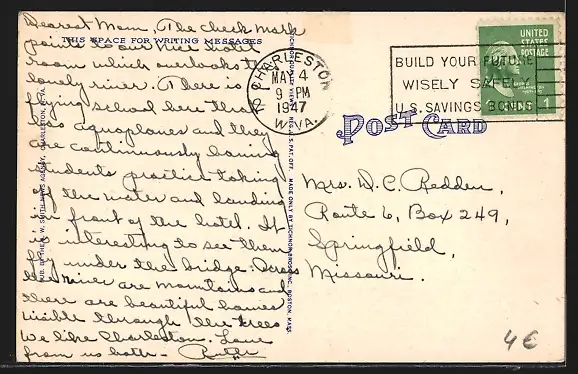 Dearest Mom, The check mark
points to our nice hotel
room which overlooks the
lovely river. There is
flying school here that
has aquaplanes and they
are continuously having
students practice taking
off the water and landing
in front of the hotel. It
is interesting to see them
fly under the bridge. Across
the river are mountains and
there are beautiful homes
visible through the trees
We like Charleston. Love
from us both - Ruth
THIS SPACE FOR WRITING MESSAGES
PUB. BY THE A. W. SMITH NEWS AGENCY, CHARLESTON, W. VA.
MADE ONLY BY TICHNOR BROS., INC., BOSTON, MASS.
CHARLESTON
MAY 4
9 PM
1947
W.VA.
BUILD YOUR FUTURE
WISELY SAFELY
U.S. SAVINGS BONDS
UNITED
STATES
POSTAGE
1 CENT 1
POST CARD
Mrs. D. C. Redden,
Route 6, Box 249,
Springfield,
Missouri.
4€